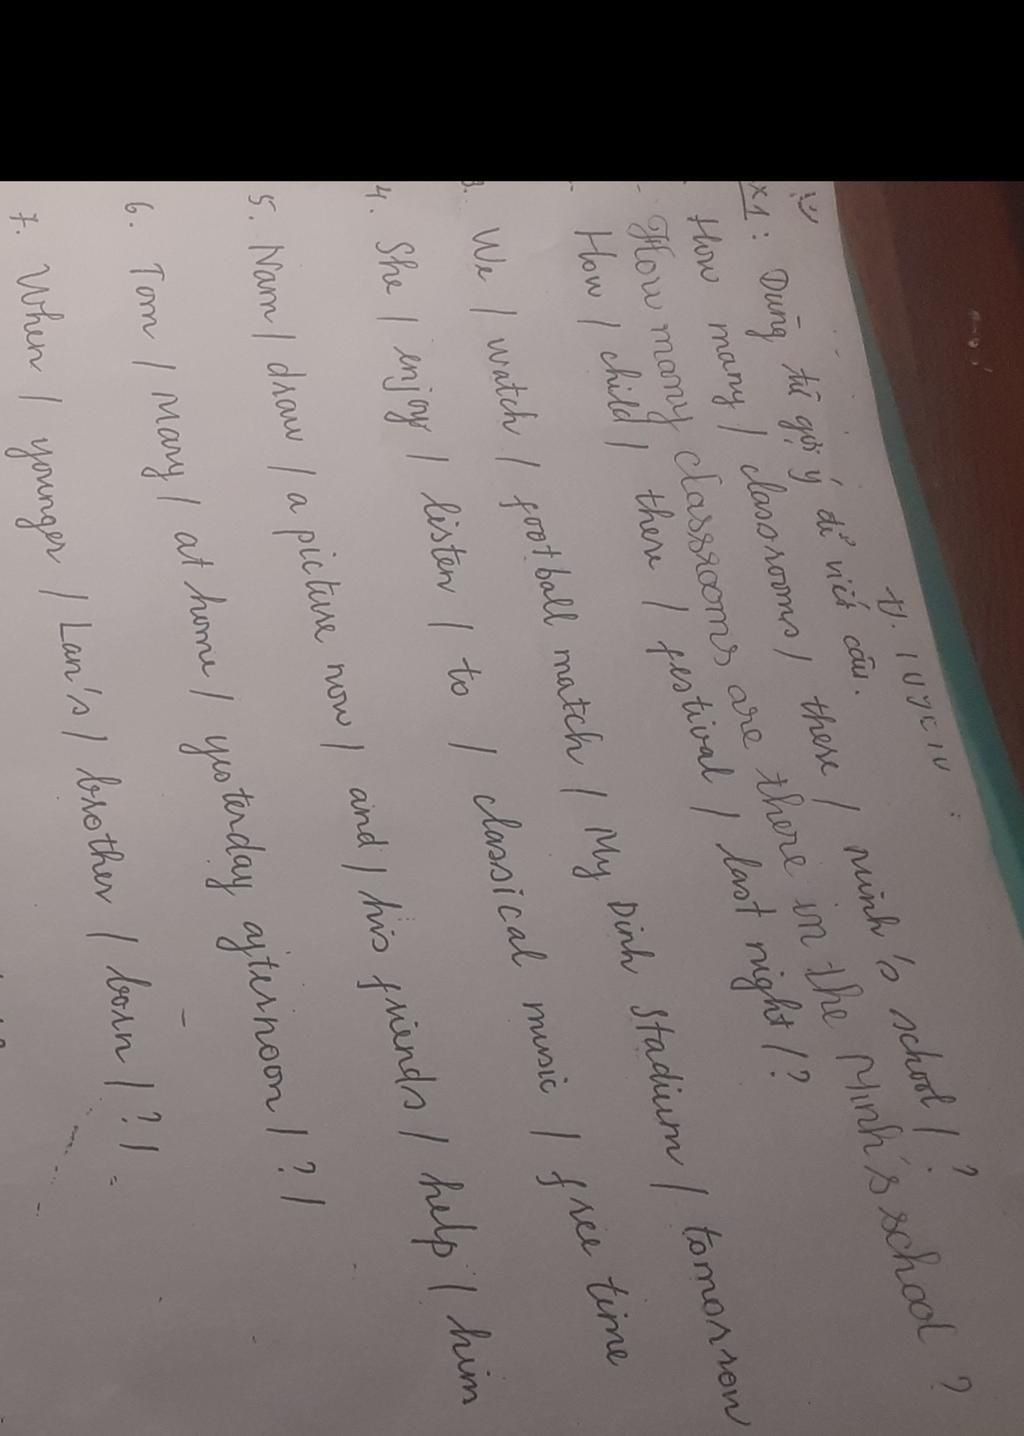 Ex1: Dùng từ gợi ý để viết câu.
How many / classrooms / there / minh's school / ?
How many classrooms are there in the Minh's school ?
How / child / there / festival / last night / ?
3. We / watch / football match / My Dinh Stadium / tomorrow
4. She / enjoy / listen / to / classical music / free time
5. Nam / draw / a picture now / and / his friends / help / him
6. Tom / Mary / at home / yesterday afternoon / ? /
7. When / younger / Lan's / brother / born / ? /